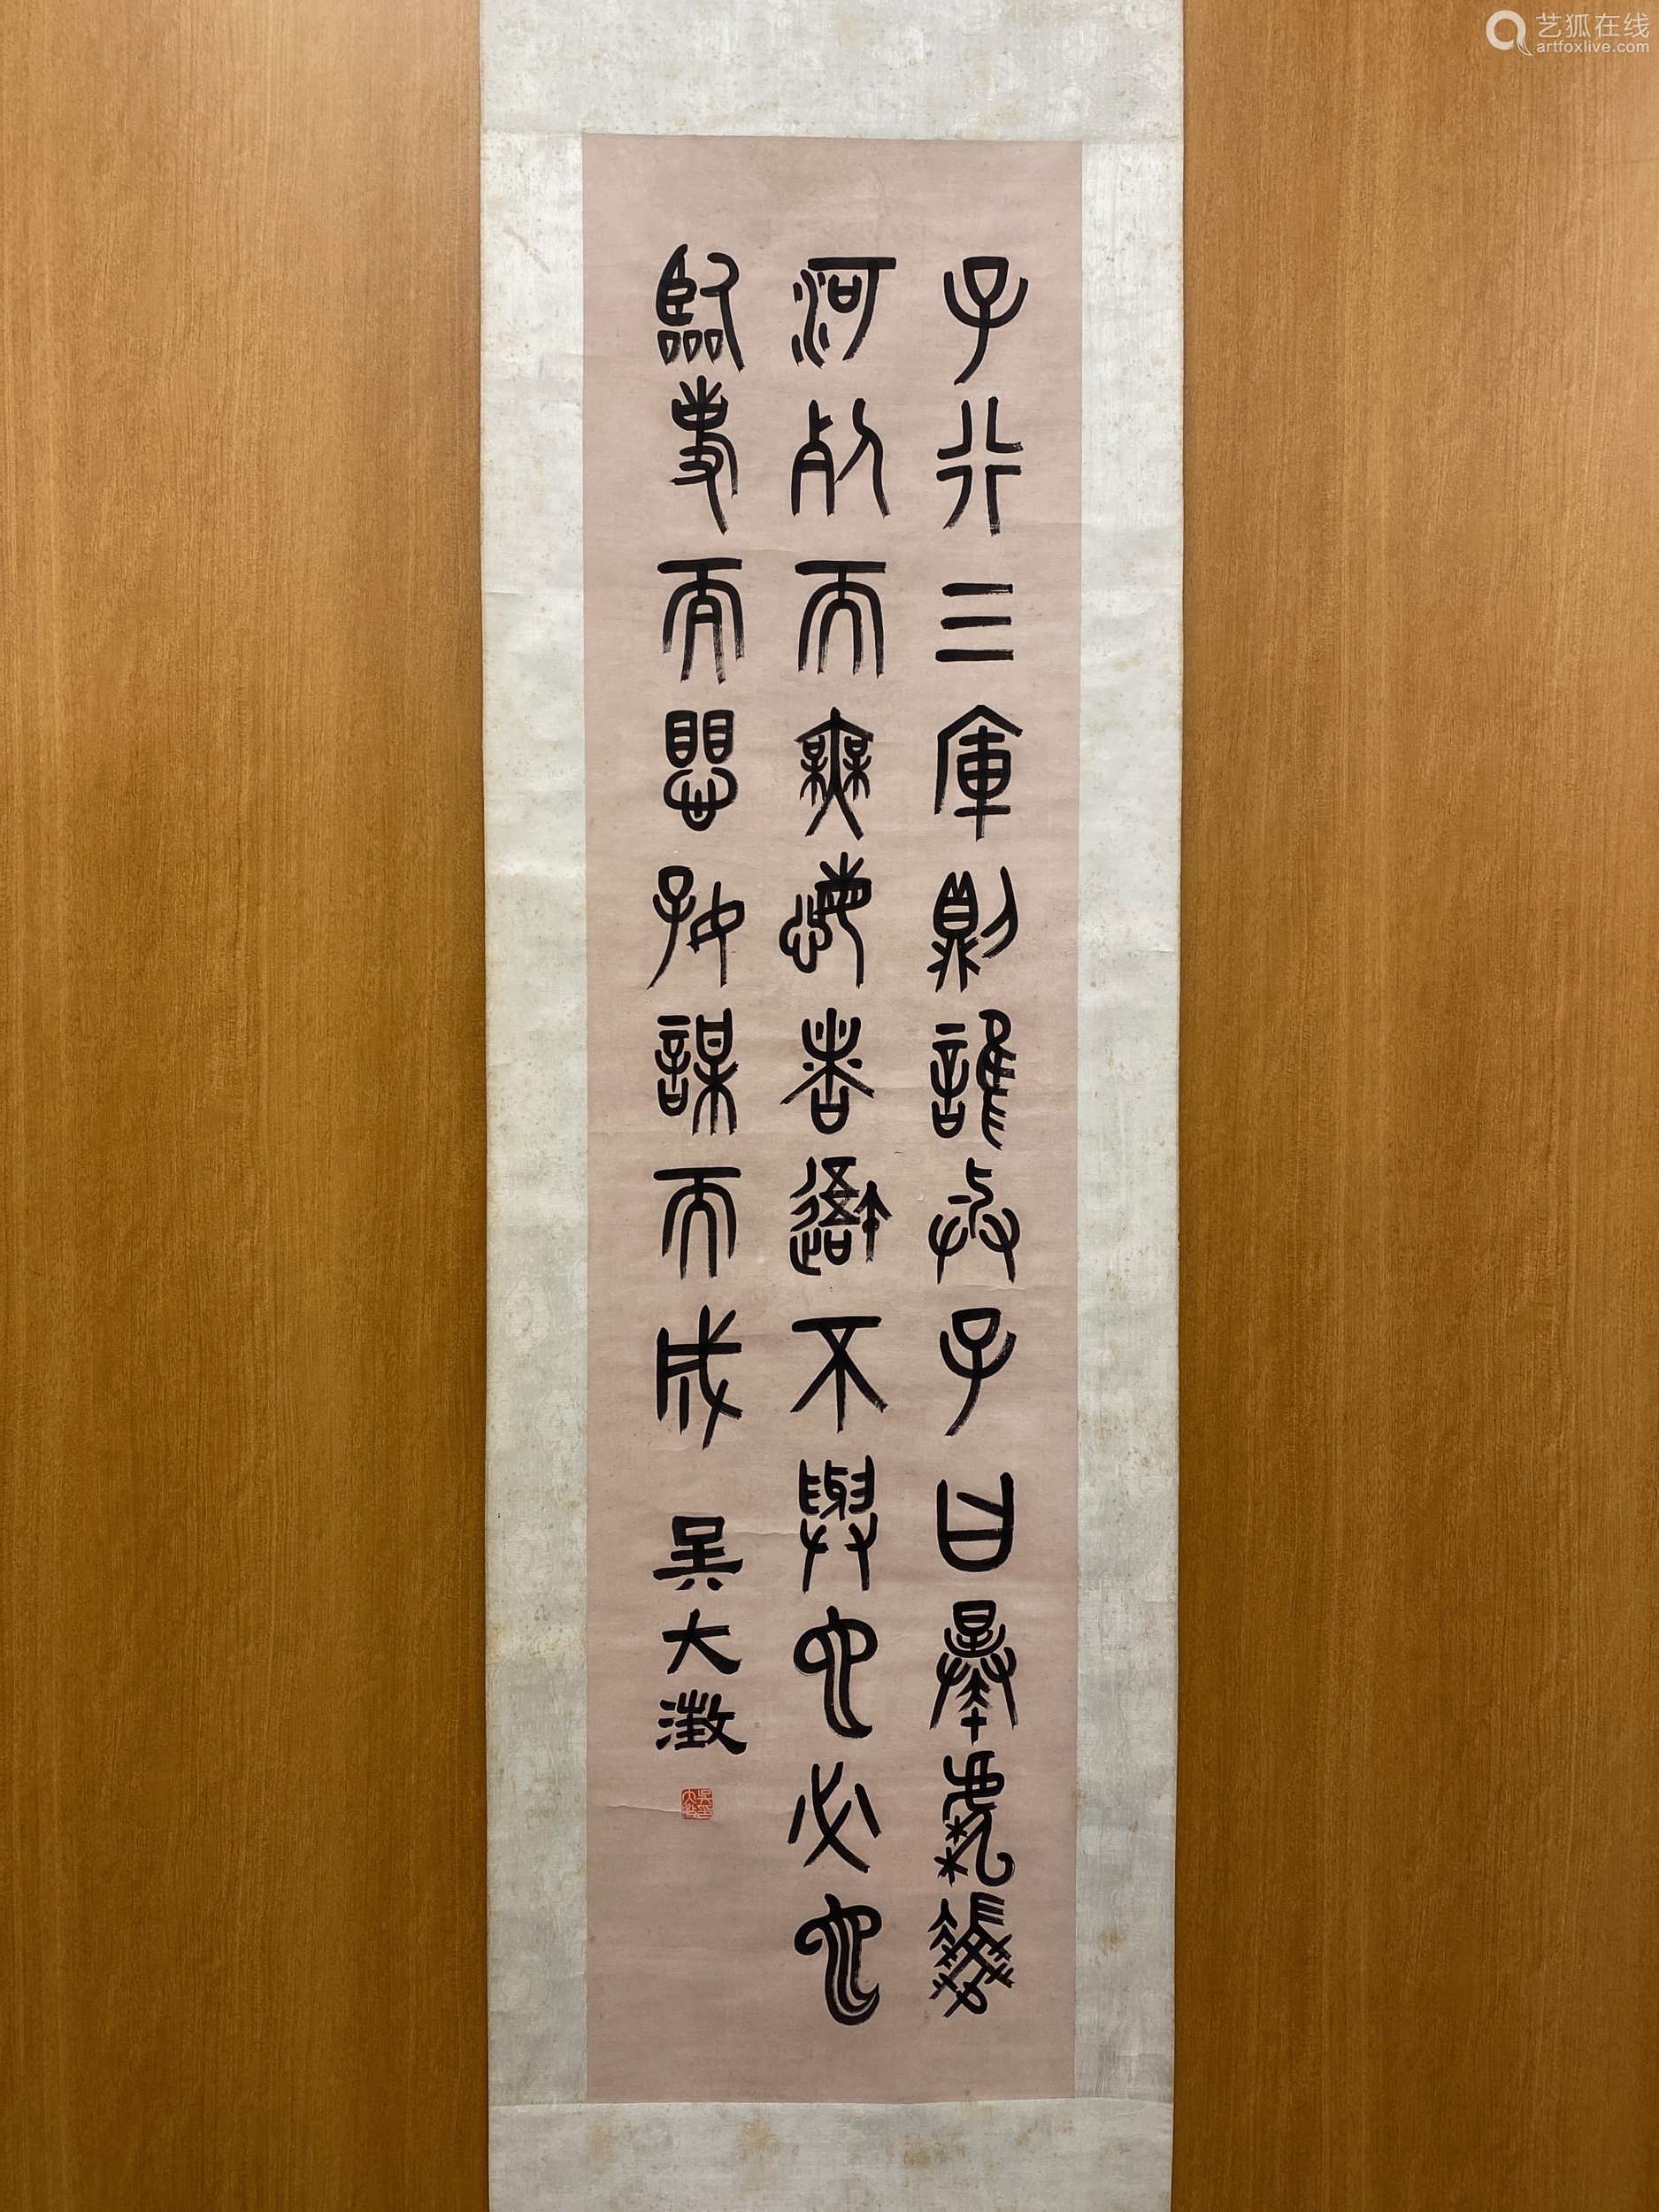 艺狐在线
artfoxlive.com
子行三軍則誰與子曰暴虎馮
河死而無悔者吾不與也必也
臨事而懼好謀而成
吳大澂